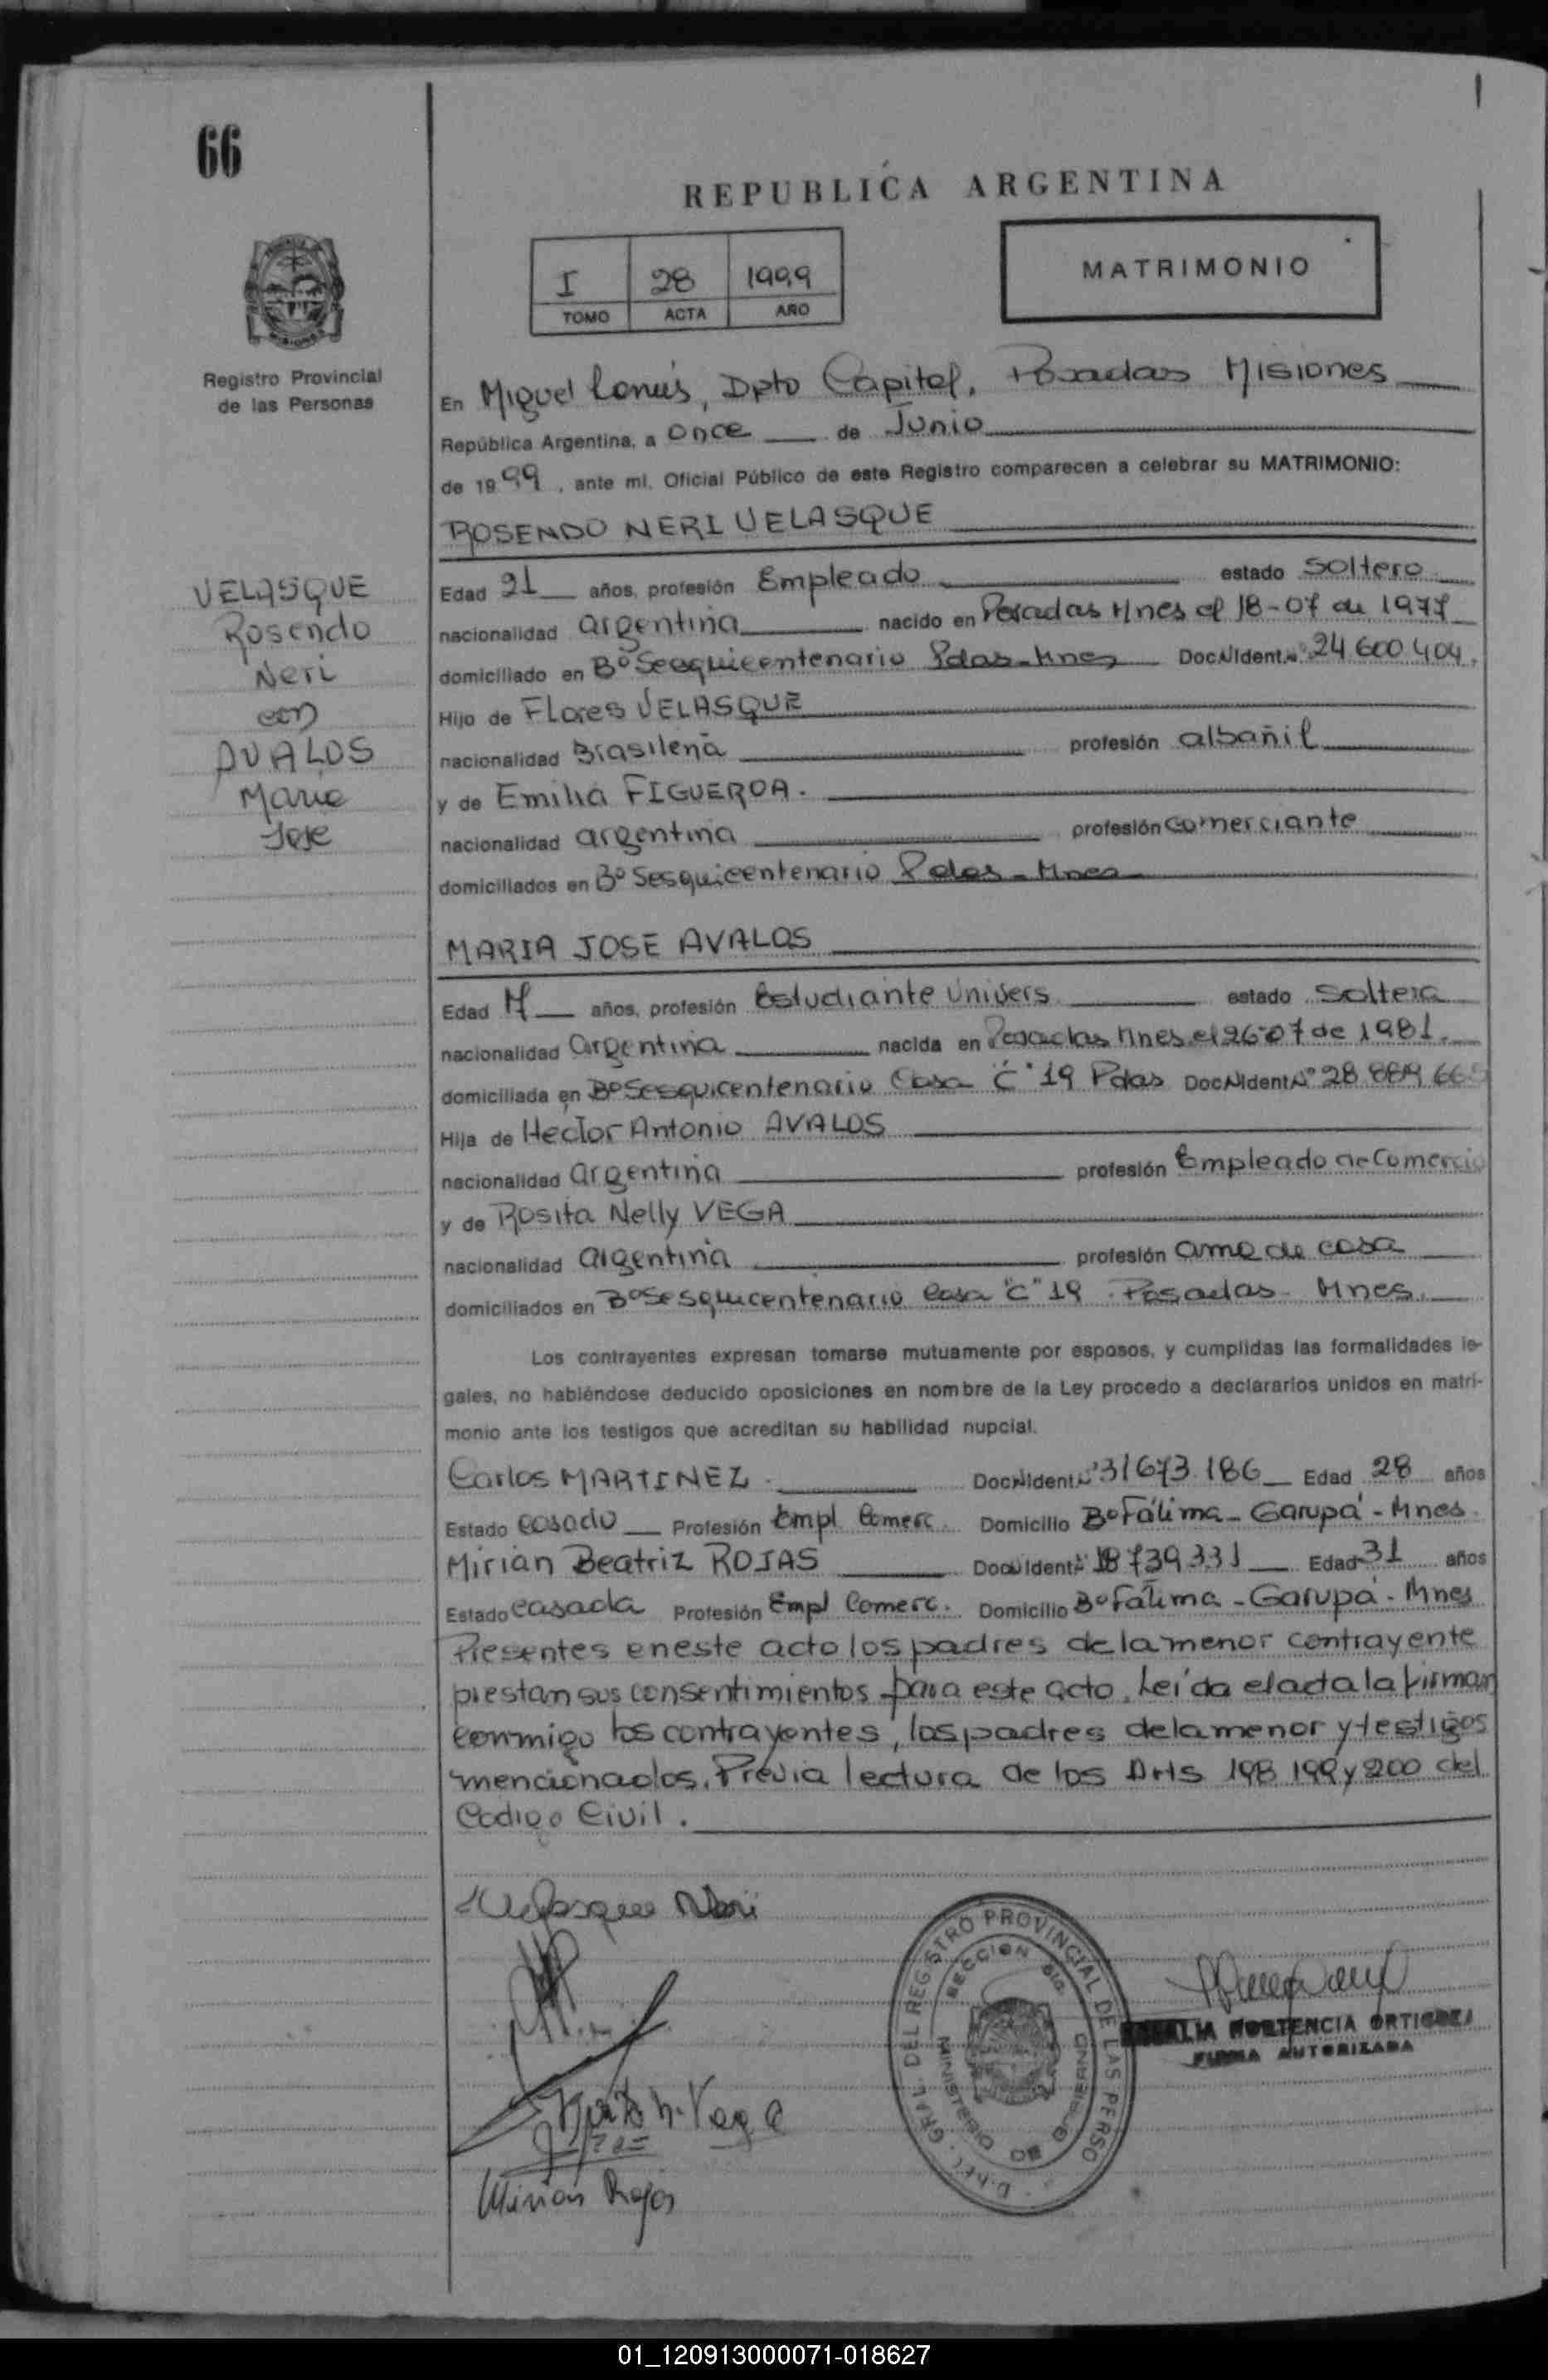 66
REPUBLICA ARGENTINA
I 28 1999
TOMO ACTA AÑO
MATRIMONIO
Registro Provincial
de las Personas
En Miguel Lanús, Dpto Capital, Posadas Misiones
República Argentina, a once de Junio
de 1999, ante mi, Oficial Público de este Registro comparecen a celebrar su MATRIMONIO:
ROSENDO NERI VELASQUE
VELASQUE
Rosendo
Neri
con
AVALOS
Maria
Jose
Edad 21 años, profesión Empleado estado soltero
nacionalidad argentina nacido en Posadas Mnes el 18-07 de 1977
domiciliado en Bº Sesquicentenario Pdas-Mnes Doc.N.Ident.Nº 24.600.404.
Hijo de Flores VELASQUE
nacionalidad Brasilena profesión albañil
y de Emilia FIGUEROA.
nacionalidad argentina profesión comerciante
domiciliados en Bº Sesquicentenario Pdas-Mnes
MARIA JOSE AVALOS
Edad 17 años, profesión Estudiante Univers estado soltera
nacionalidad argentina nacida en Posadas Mnes el 26-07 de 1981.
domiciliada en Bº Sesquicentenario Casa "C" 19 Pdas Doc.N.Ident.Nº 28.889.665
Hija de Hector Antonio AVALOS
nacionalidad argentina profesión Empleado de Comercio
y de Rosita Nelly VEGA
nacionalidad argentina profesión ama de casa
domiciliados en Bº Sesquicentenario Casa "C" 19 Posadas - Mnes.
Los contrayentes expresan tomarse mutuamente por esposos, y cumplidas las formalidades le-
gales, no habiéndose deducido oposiciones en nombre de la Ley procedo a declararlos unidos en matri-
monio ante los testigos que acreditan su habilidad nupcial.
Carlos MARTINEZ. Doc.N.Ident.Nº 31673.186 Edad 28 años
Estado casado Profesión Empl Comerc. Domicilio Bº Fátima - Garupá - Mnes.
Mirian Beatriz ROJAS Doc.N.Ident.Nº 18739.331 Edad 31 años
Estado casada Profesión Empl Comerc. Domicilio Bº Fátima - Garupá - Mnes
Presentes en este acto los padres de la menor contrayente
prestan sus consentimientos para este acto. Leída el acta la firman
conmigo los contrayentes, los padres de la menor y testigos
mencionados. Previa lectura de los Arts 198 199 y 200 del
Codigo Civil.
Velasque Neri
DIREC. GRAL. DEL REGISTRO PROVINCIAL DE LAS PERSO
SECCION
MINISTERIO DE GOBIERNO
HORTENCIA ORTIGOZA
FIRMA AUTORIZADA
Rosita N. Vega
Mirian Rojas
01_120913000071-018627